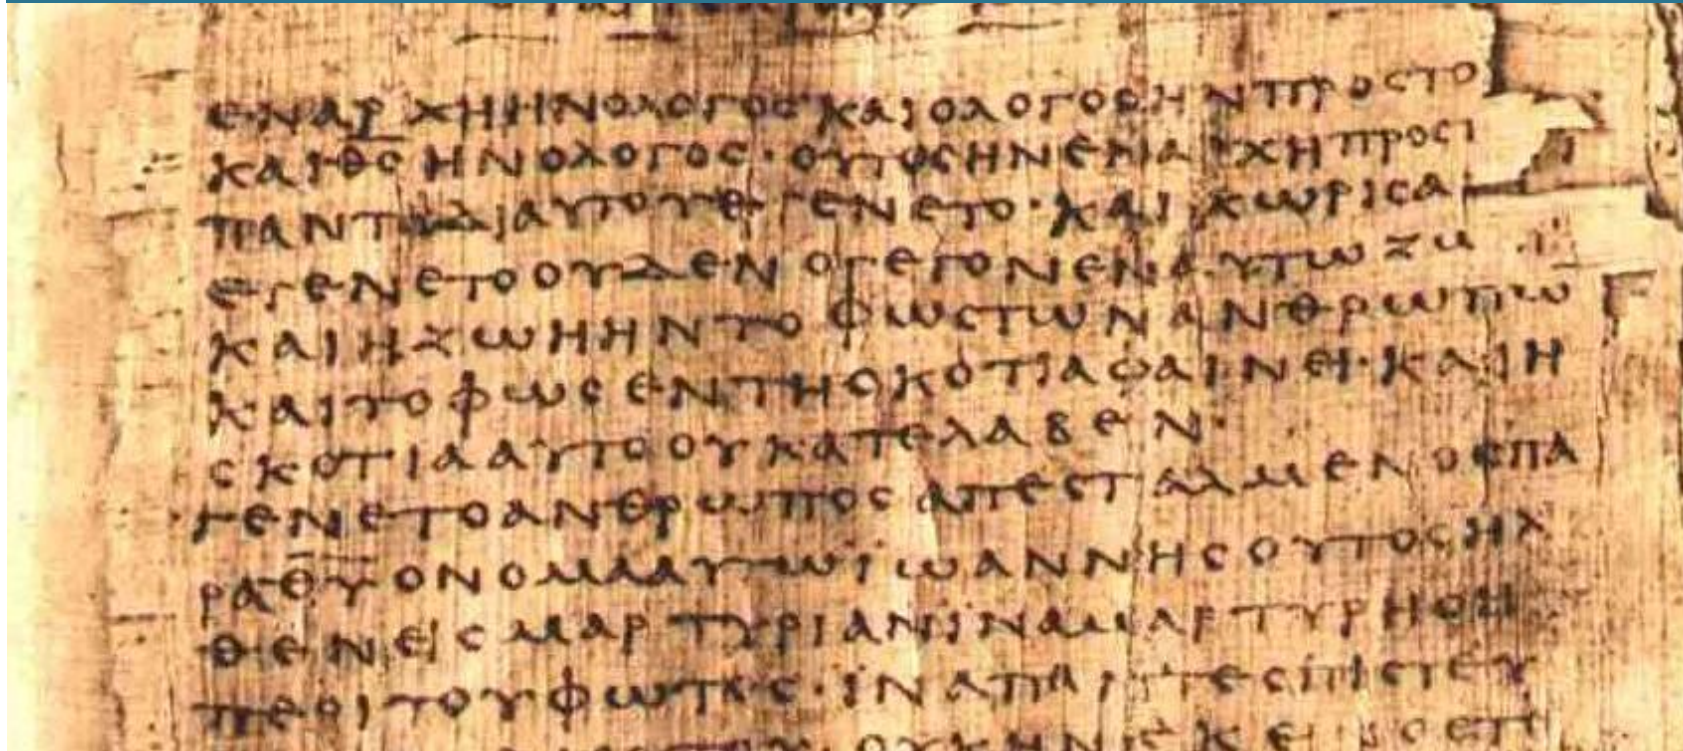 ΕΝΑΡΧΗΗΝΟΛΟΓΟΣΚΑΙΟΛΟΓΟΣΗΝΠΡΟΣΤΟ
ΚΑΙΘ̅Σ̅ΗΝΟΛΟΓΟΣ·ΟΥΤΟΣΗΝΕΝΑΡΧΗΠΡΟΣΤ
ΠΑΝΤΑΔΙΑΥΤΟΥΕΓΕΝΕΤΟ·ΚΑΙΧΩΡΙΣΑ
ΕΓΕΝΕΤΟΟΥΔΕΝΟΓΕΓΟΝΕΝΕΝΑΥΤΩΖΩ
ΚΑΙΗΖΩΗΗΝΤΟΦΩΣΤΩΝΑΝΘΡΩΠΩ
ΚΑΙΤΟΦΩΣΕΝΤΗΣΚΟΤΙΑΦΑΙΝΕΙ·ΚΑΙΗ
ΣΚΟΤΙΑΑΥΤΟΟΥΚΑΤΕΛΑΒΕΝ·
ΓΕΝΕΤΟΑΝΘΡΩΠΟΣΑΠΕΣΤΑΛΜΕΝΟΣΠΑ
ΡΑΘ̅Υ̅ΟΝΟΜΑΑΥΤΩΪΩΑΝΝΗΣΟΥΤΟΣΗΛ
ΘΕΝΕΙΣΜΑΡΤΥΡΙΑΝΪΝΑΜΑΡΤΥΡΗΣΗ
ΠΕΡΙΤΟΥΦΩΤΟΣ·ΪΝΑΠΑΝΤΕΣΠΙΣΤΕΥ